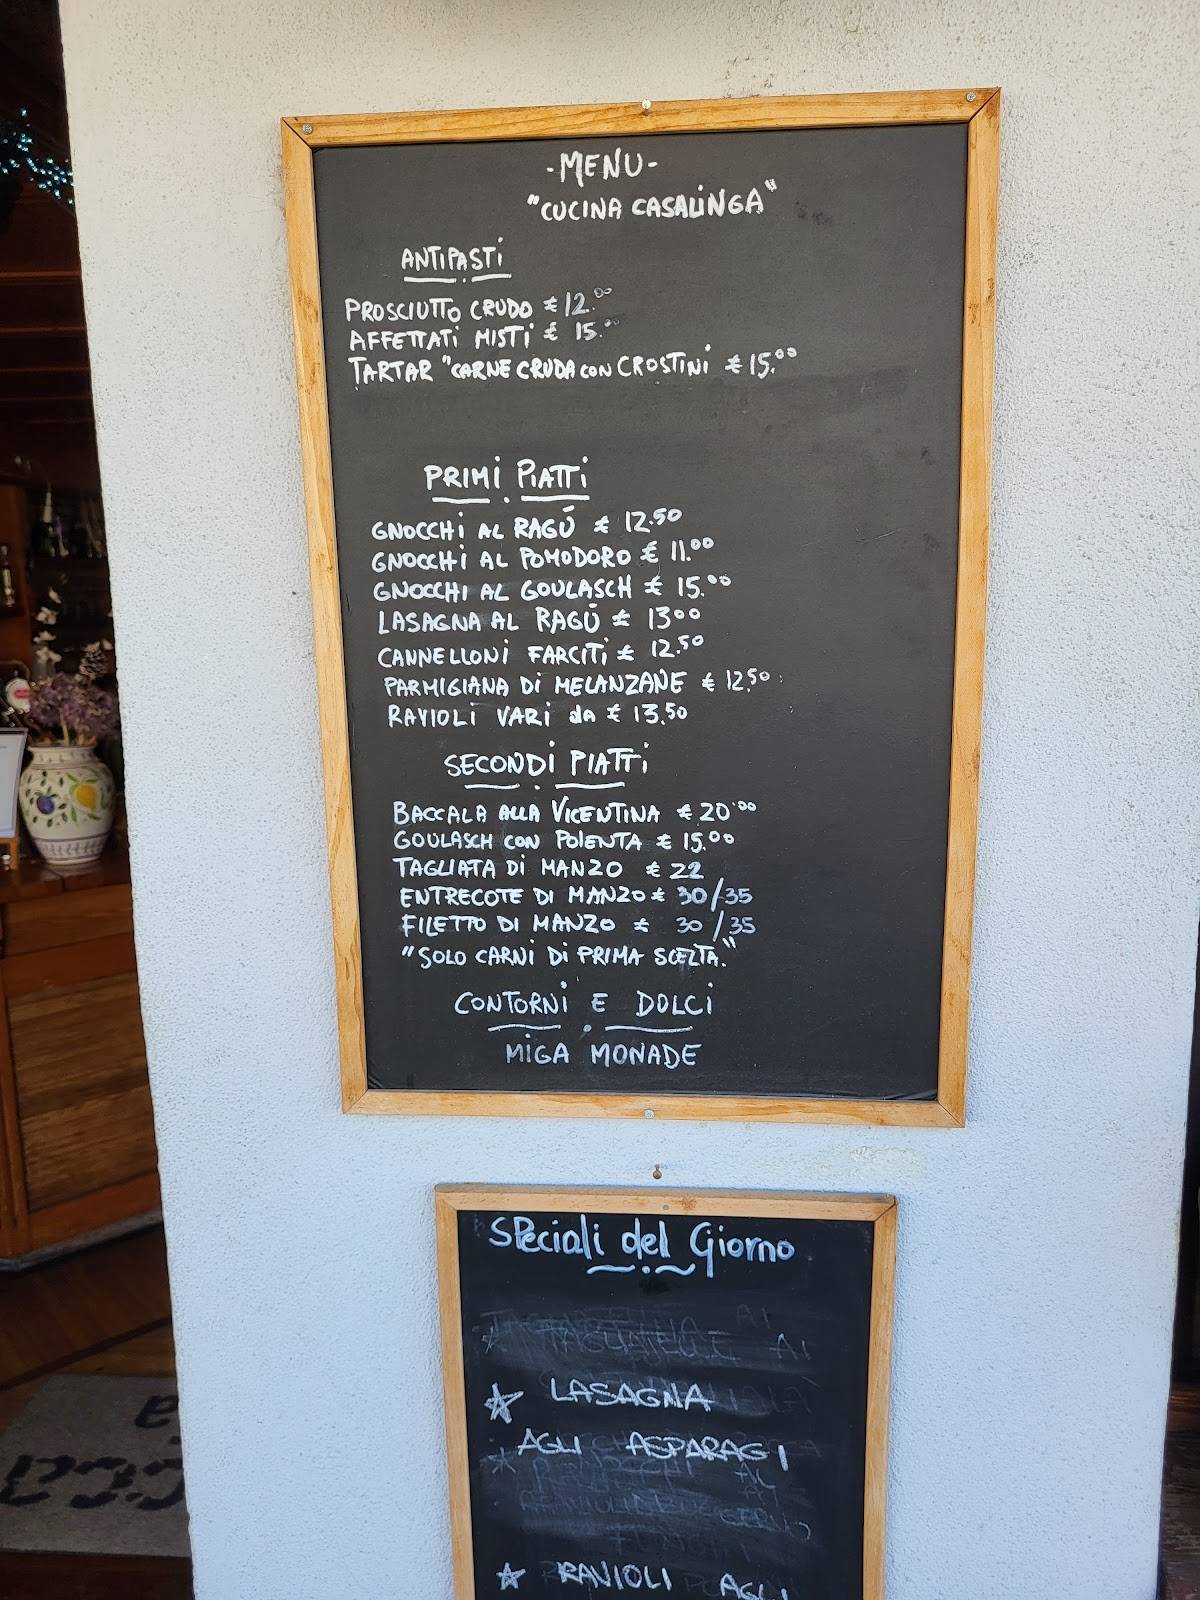 -MENU-
"CUCINA CASALINGA"
ANTIPASTI
PROSCIUTTO CRUDO € 12.00
AFFETTATI MISTI € 15.00
TARTAR "CARNE CRUDA CON CROSTINI € 15.00
PRIMI PIATTI
GNOCCHI AL RAGÚ € 12.50
GNOCCHI AL POMODORO € 11.00
GNOCCHI AL GOULASCH € 15.00
LASAGNA AL RAGÚ € 1300
CANNELLONI FARCITI € 12.50
PARMIGIANA DI MELANZANE € 12.50
RAVIOLI VARI da € 13.50
SECONDI PIATTI
BACCALA ALLA VICENTINA € 20.00
GOULASCH CON POLENTA € 15.00
TAGLIATA DI MANZO € 22
ENTRECOTE DI MANZO € 30/35
FILETTO DI MANZO € 30/35
"SOLO CARNI DI PRIMA SCELTA."
CONTORNI E DOLCI
MIGA MONADE
SPeciali del Giorno
TAGLIATELLE AI
LASAGNA
AGLI ASPARAGI
RAVIOLI AGLI